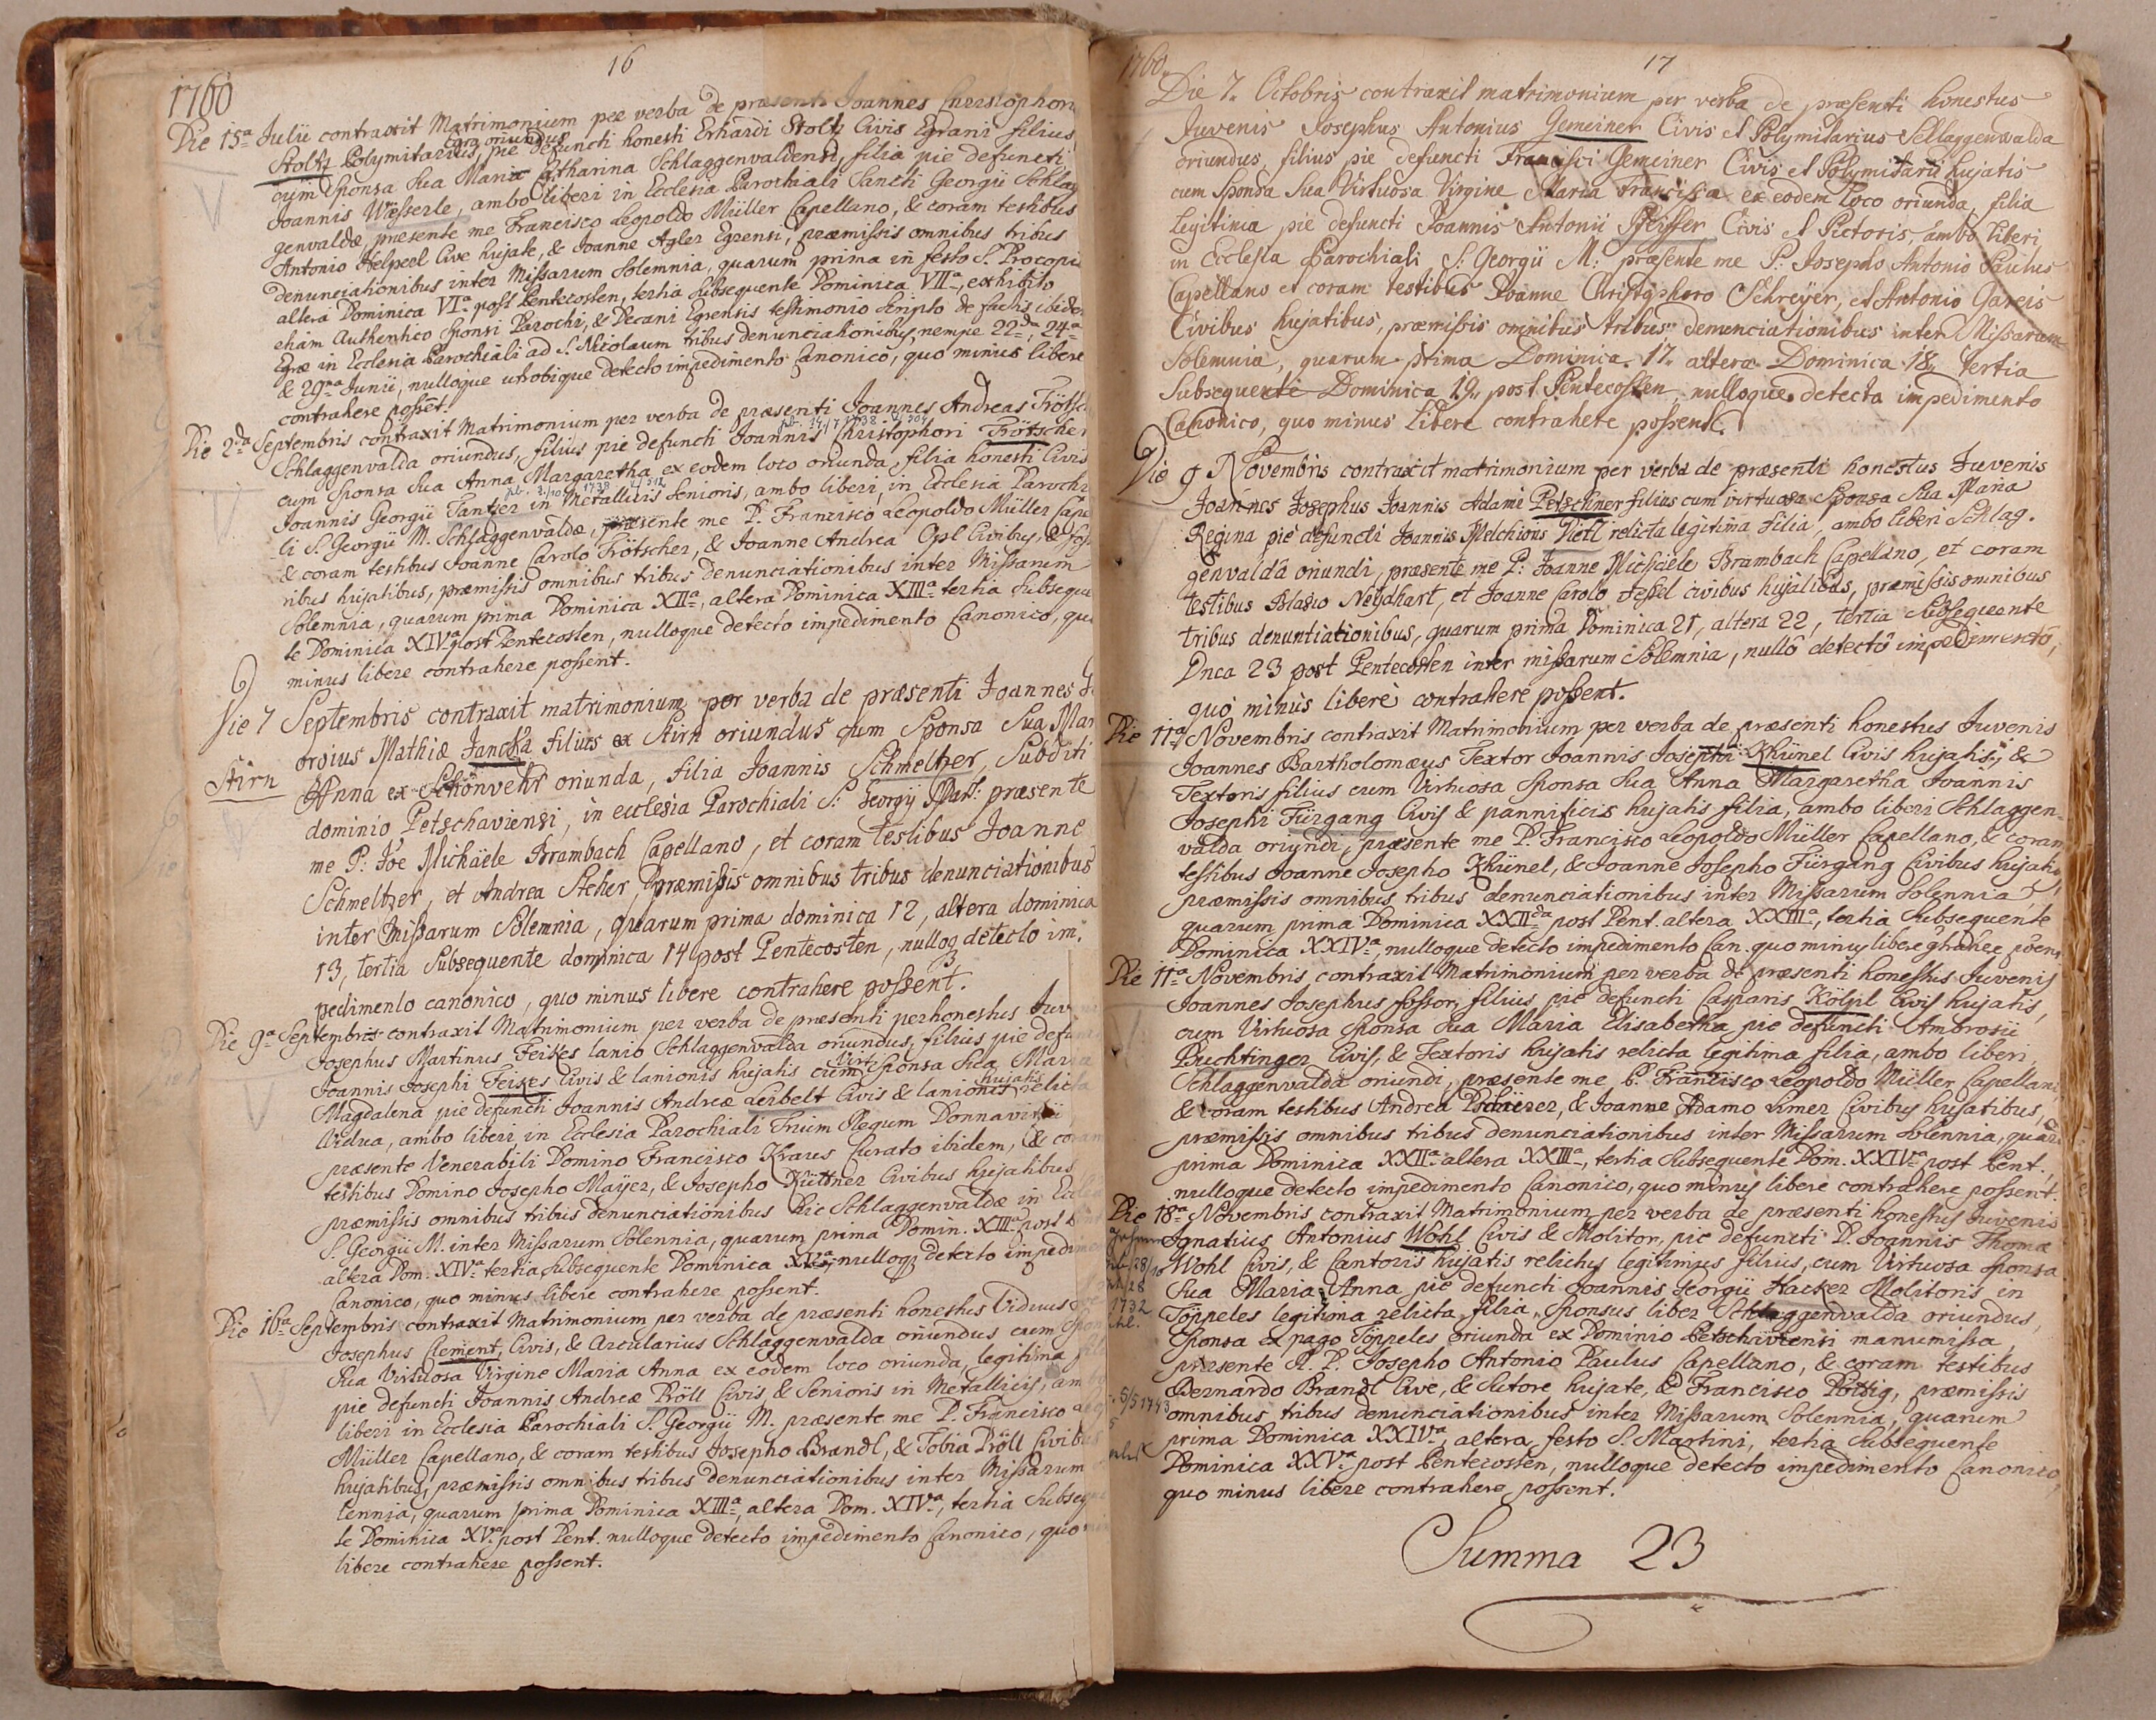 1760
16
Die 15a Julii contraxit Matrimonium per verba de præsenti Joannes Christophorus
Egra oriundus
Stoltz Polymitarius, pie defuncti honesti Erhardi Stoltz Civis Egrani filius
cum Sponsa Sua Maria Catharina Schlaggenvaldensi, filia pie defuncti
Joannis Wæsserle, ambo liberi in Ecclesia Parochiali Sancti Georgii Schlag
genvaldæ, præsente me Francisco Leopoldo Müller Capellano, & coram testibus
Antonio Helperl Cive hujate, & Joanne Agler Egrensi, præmissis omnibus tribus
denunciationibus inter Missarum Solemnia, quarum prima in festo S. Procopii
altera Dominica VIa post Pentecosten, tertia Subsequente Dominica VIIa, exhibito
etiam Authentico Sponsi Parochi, & Decani Egrensis testimonio Scripto de factis ibidem
Egræ in Ecclesia Parochiali ad S. Nicolaum tribus denunciationibus, nempe 22da, 24ta
& 29na Junii, nulloque utrobique detecto impedimento Canonico, quo minus libere
contrahere possent.
Die 2da Septembris contraxit Matrimonium per verba de præsenti Joannes Andreas Trötscher
Schlaggenvalda oriundus, filius pie defuncti Joannis Christophori Trötscher
cum Sponsa Sua Anna Margaretha ex eodem loco oriunda, filia honesti Civis
Joannis Georgii Tantzer in Metallicis Senioris, ambo liberi in Ecclesia Parochia
li S. Georgii M. Schlaggenvaldæ, præsente me P. Francisco Leopoldo Müller Cape
& coram testibus Joanne Carolo Trötscher, & Joanne Andrea Opl Civibus, &
ribus hujatibus, præmissis omnibus tribus denunciationibus inter Missarum
Solemnia, quarum prima Dominica XIIa, altera Dominica XIIIa tertia Subsequen
te Dominica XIVa post Pentecosten, nulloque detecto impedimento Canonico, quo
minus libere contrahere possent.
Die 7 Septembris contraxit matrimonium per verba de præsenti Joannes
orgius Mathiæ Jancka filius ex Stirn oriundus cum Sponsa Sua Mar
Stirn
Anna ex Schönvehr oriunda, filia Joannis Schmeltzer, Subditi
dominio Petschaviensi, in ecclesia Parochiali S: Georgij Mart: præsente
me P: Joe Michaele Brambach Capellano, et coram testibus Joanne
Schmeltzer, et Andrea Steher, præmissis omnibus tribus denunciationibus
inter Missarum Solemnia, quarum prima dominica 12, altera dominica
13, tertia Subsequente dominica 14 post Pentecosten, nulloq detecto im.
pedimento canonico, quo minus libere contrahere possent.
Die 9a Septembris contraxit Matrimonium per verba de præsenti perhonestus Juv
Josephus Martinus Feikes lanio Schlaggenvalda oriundus, filius pie defun
Joannis Josephi Feikes Civis & lanionis hujatis cum Virt. Sponsa Sua Maria
Magdalena pie defuncti Joannis Andreæ Leibelt Civis & lanionis hujatis relicta
Vidua, ambo liberi in Ecclesia Parochiali Trium Regum Donnavitii
præsente Venerabili Domino Francisco Kraus Curato ibidem, & coram
testibus Domino Josepho Mayer, & Josepho Küttner Civibus hujatibus
præmissis omnibus tribus denunciationibus hic Schlaggenvaldæ in Eccle
S. Georgii M. inter Missarum Solennia, quarum prima Domin. XIIIa post
altera Dom. XIVa tertia Subsequente Dominica XVa, nulloq detecto impedim
Canonico, quo minus libere contrahere possent.
Die 16a Septembris contraxit Matrimonium per verba de præsenti honestus Viduus
Josephus Clement, Civis, & Arcularius Schlaggenvalda oriundus cum Spon
Sua Virtuosa Virgine Maria Anna ex eodem loco oriunda, legitima
pie defuncti Joannis Andreæ Pröll Civis & Senioris in Metallicis, am
liberi in Ecclesia Parochiali S. Georgii M. præsente me P. Francisco
Müller Capellano, & coram testibus Josepho Brandl, & Tobia Pröll Civibus
hujatibus, præmissis omnibus tribus denunciationibus inter Missarum
lennia, quarum prima Dominica XIIIa, altera Dom. XIVa, tertia Subseq
te Dominica XVa post Pent. nulloque detecto impedimento Canonico, quo
libere contrahere possent.
1760
17
Die 7. Octobris contraxit matrimonium per verba de præsenti honestus
Juvenis Josephus Antonius Gemeiner Civis et Polymitarius Schlaggenwalda
oriundus, filius pie defuncti Francisci Gemeiner Civis et Polymitarii hujatis
cum Sponsa Sua Virtuosa Virgine Maria Francisca ex eodem loco oriunda, filia
legitima pie defuncti Joannis Antonii Pfeiffer Civis et Pictoris, ambo liberi
in Ecclesia Parochiali S: Georgii M: præsente me P: Josepho Antonio Paulus
Capellano et coram testibus Joanne Christophoro Schreyer, et Antonio Gareis
Civibus hujatibus, præmissis omnibus tribus denunciationibus inter Missarum
Solemnia, quarum prima Dominica 17. altera Dominica 18. tertia
Subsequente Dominica 19. post Pentecosten, nulloque detecta impedimento
Canonico, quo minus libere contrahere possent.
Die 9 Novembris contraxit matrimonium per verba de præsenti honestus Juvenis
Joannes Josephus Joannis Adami Petschner filius cum virtuosa Sponsa Sua Maria
Regina pie defuncti Joannis Melchioris Vietl relicta legitima filia, ambo liberi Schlag.
genvaldâ oriundi, præsente me P: Joanne Michaele Brambach Capellano, et coram
testibus Blasio Neydhart, et Joanne Carolo Fessel civibus hujatibus, præmissis omnibus
tribus denuntiationibus, quarum prima Dominica 21, altera 22, tertia Subsequente
Dnca 23 post Pentecosten inter missarum Solemnia, nullô detectô impedimentô,
quo minùs liberè contrahere possent.
Die 11a Novembris contraxit Matrimonium per verba de præsenti honestus Juvenis
Joannes Bartholomæus Textor Joannis Josephi Khünel Civis hujatis, &
Textoris filius cum Virtuosa Sponsa Sua Anna Margaretha Joannis
Josephi Fürgang Civis & pannificis hujatis filia, ambo liberi Schlaggen-
valda oriundi, præsente me P. Francisco Leopoldo Müller Capellano, & coram
testibus Joanne Josepho Khünel, & Joanne Josepho Fürgang Civibus hujatibus,
præmissis omnibus tribus denunciationibus inter Missarum Solennia,
quarum prima Dominica XXIIda post Pent. altera XXIIIa, tertia Subsequente
Dominica XXIVa, nulloque detecto impedimento Can. quo minus libere
Die 11a Novembris contraxit Matrimonium per verba de præsenti honestus Juvenis
Joannes Josephus fossor, filius pie defuncti Casparis Kölpl Civis hujatis,
cum Virtuosa Sponsa Sua Maria Elisabetha pie defuncti Ambrosii
Buchtinger Civis, & Textoris hujatis relicta legitima filia, ambo liberi,
Schlaggenvaldâ oriundi, præsente me P. Francisco Leopoldo Müller Capellano,
& coram testibus Andrea & Joanne Adamo Limer Civibus hujatibus,
præmissis omnibus tribus denunciationibus inter Missarum Solennia, quar
prima Dominica XXIIa altera XXIIIa, tertia Subsequente Dom. XXIVa post Pent.,
nulloque detecto impedimento Canonico, quo minus libere contrahere possent.
Die 18a Novembris contraxit Matrimonium per verba de præsenti honestus Juvenis
Ignatius Antonius Wohl Civis & Molitor, pie defuncti D. Joannis Thomæ
Wohl Civis, & Cantoris hujatis relictus legitimus filius, cum Virtuosa Sponsa
Sua Maria Anna pie defuncti Joannis Georgii Hacker Molitoris in
1732
Töppeles legitima relicta filia, Sponsus liber Schlaggenvalda oriundus,
Sponsa ex pago Töppeles oriunda ex Dominio Petschaviensi manumissa,
præsente A. P. Josepho Antonio Paulus Capellano, & coram testibus
Bernardo Brandl Cive, & Sutore hujate, & Francisco Poßig, præmissis
5/5 1743
omnibus tribus denunciationibus inter Missarum Solennia, quarum
prima Dominica XXIVa, altera festo S. Martini, tertia Subsequente
Dominica XXVa post Pentecosten, nulloque detecto impedimento Canonico,
quo minus libere contrahere possent.
Summa 23